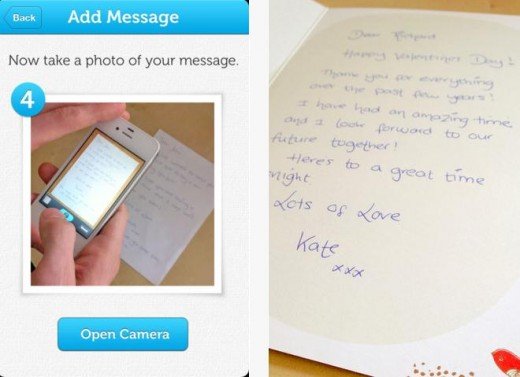 Back
Add Message
Now take a photo of your message.
4
Open Camera
Dear
Happy Valentines Day!
Thank you for everything
over the past few years!
I have had an amazing time
and I look forward to our
future together!
Heres to a great time
night
Lots of Love
Kate
xxx